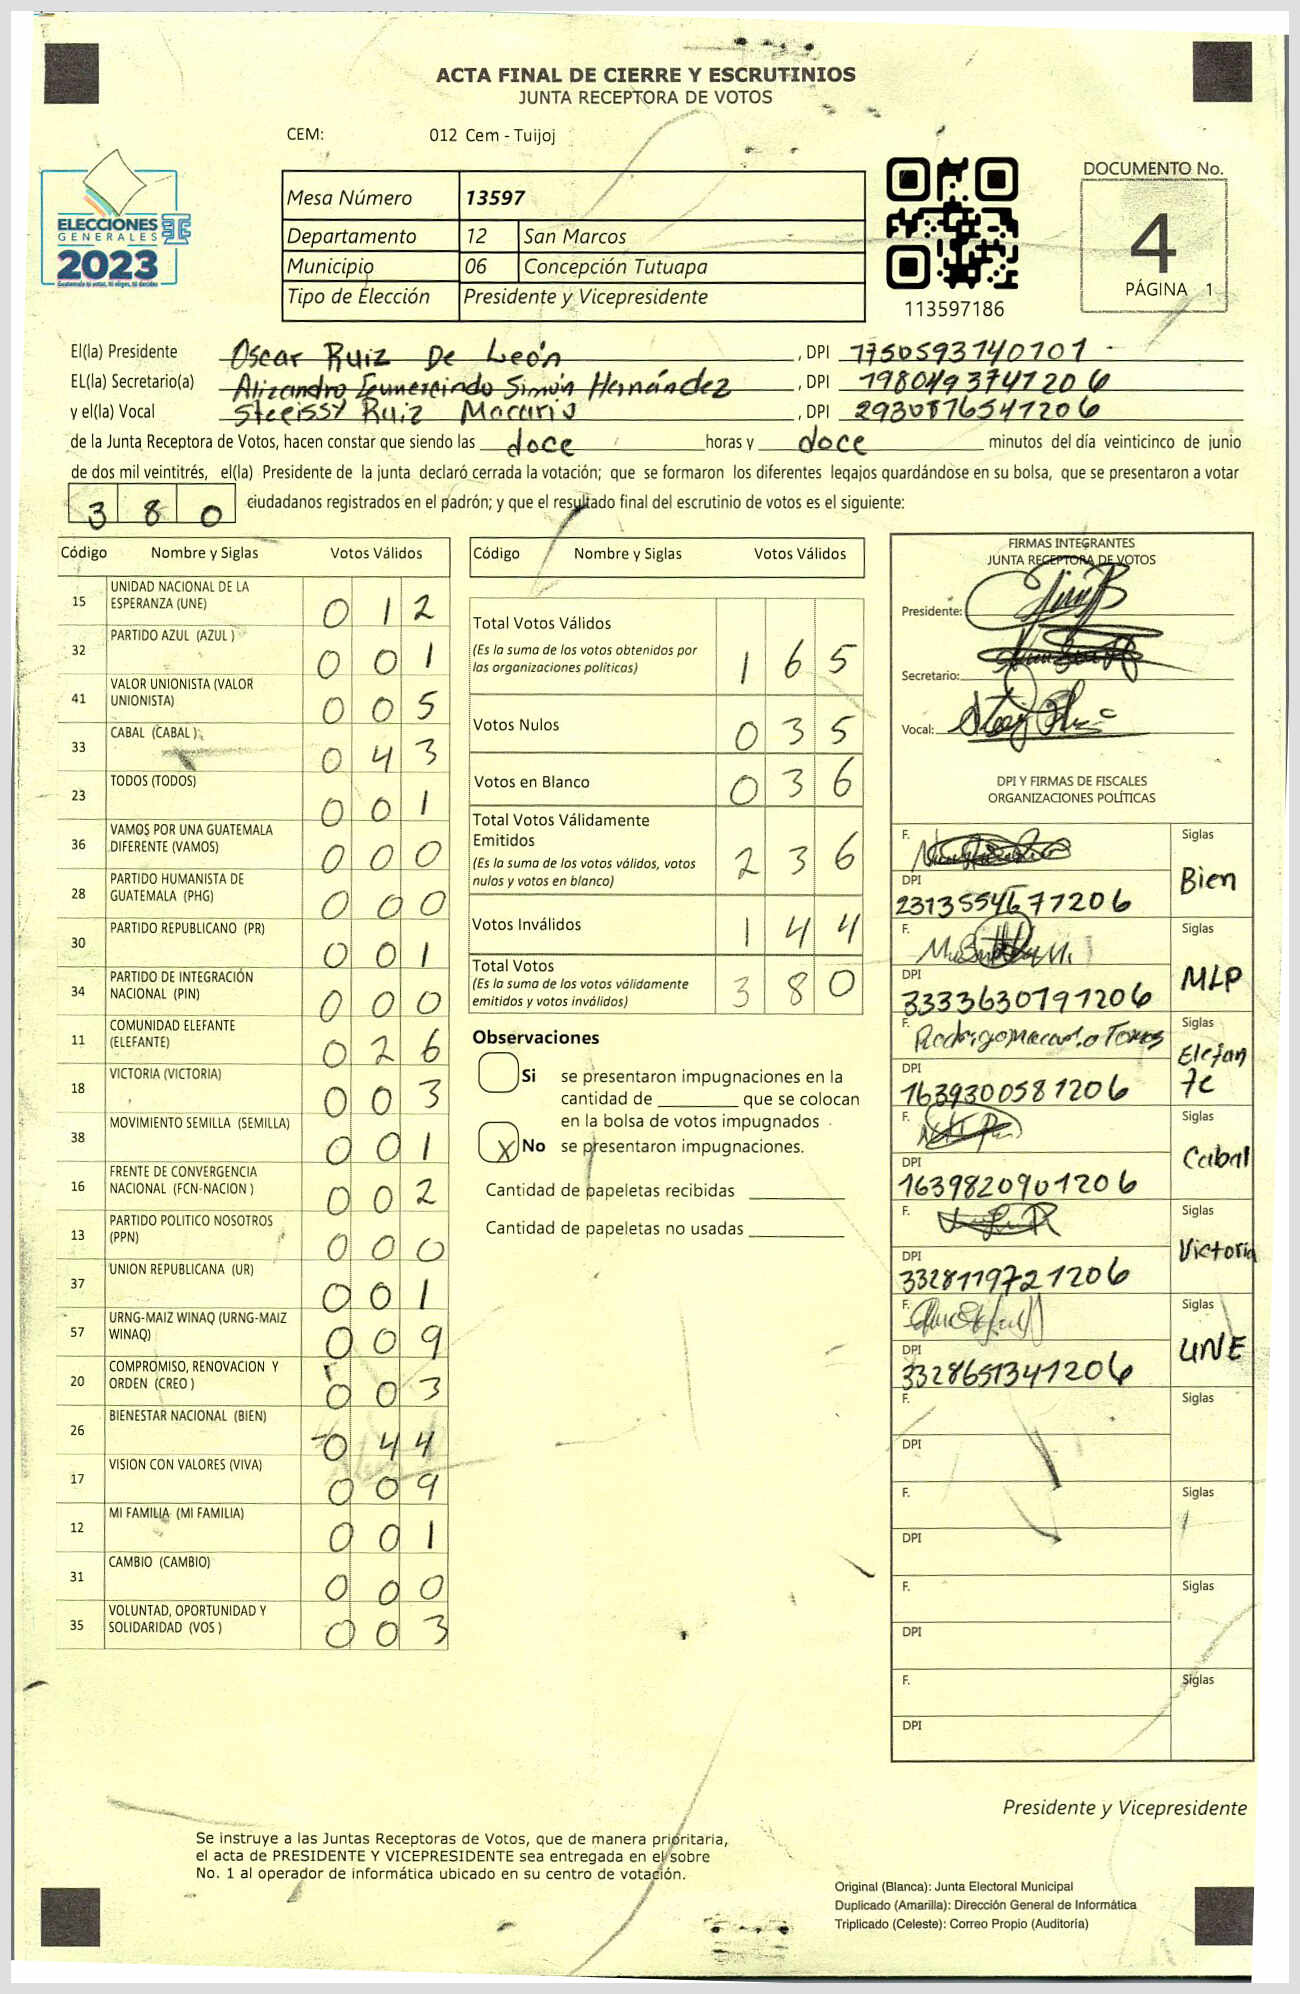 ACTA FINAL DE CIERRE Y ESCRUTINIOS
JUNTA RECEPTORA DE VOTOS
CEM: 012 Cem - Tuijoj
ELECCIONES
GENERALES
2023
Mesa Número 13597
Departamento 12 San Marcos
Municipio 06 Concepción Tutuapa
Tipo de Elección Presidente y Vicepresidente
113597186
DOCUMENTO No.
4
PÁGINA 1
El(la) Presidente Oscar Ruiz De León, DPI 1750593740101
EL(la) Secretario(a) Simón Hernández, DPI 1980493741206
y el(la) Vocal Ruiz Macario, DPI 2930876541206
de la Junta Receptora de Votos, hacen constar que siendo las doce horas y doce minutos del día veinticinco de junio
de dos mil veintitrés, el(la) Presidente de la junta declaró cerrada la votación; que se formaron los diferentes legajos guardándose en su bolsa, que se presentaron a votar
380 ciudadanos registrados en el padrón; y que el resultado final del escrutinio de votos es el siguiente:
Código Nombre y Siglas Votos Válidos
15 UNIDAD NACIONAL DE LA ESPERANZA (UNE) 012
32 PARTIDO AZUL (AZUL ) 001
41 VALOR UNIONISTA (VALOR UNIONISTA) 005
33 CABAL (CABAL ) 043
23 TODOS (TODOS) 001
36 VAMOS POR UNA GUATEMALA DIFERENTE (VAMOS) 000
28 PARTIDO HUMANISTA DE GUATEMALA (PHG) 000
30 PARTIDO REPUBLICANO (PR) 001
34 PARTIDO DE INTEGRACIÓN NACIONAL (PIN) 000
11 COMUNIDAD ELEFANTE (ELEFANTE) 026
18 VICTORIA (VICTORIA) 003
38 MOVIMIENTO SEMILLA (SEMILLA) 001
16 FRENTE DE CONVERGENCIA NACIONAL (FCN-NACION ) 002
13 PARTIDO POLITICO NOSOTROS (PPN) 000
37 UNION REPUBLICANA (UR) 001
57 URNG-MAIZ WINAQ (URNG-MAIZ WINAQ) 009
20 COMPROMISO, RENOVACION Y ORDEN (CREO ) 003
26 BIENESTAR NACIONAL (BIEN) 044
17 VISION CON VALORES (VIVA) 009
12 MI FAMILIA (MI FAMILIA) 001
31 CAMBIO (CAMBIO) 000
35 VOLUNTAD, OPORTUNIDAD Y SOLIDARIDAD (VOS ) 003
Código Nombre y Siglas Votos Válidos
Total Votos Válidos 165
(Es la suma de los votos obtenidos por
las organizaciones políticas)
Votos Nulos 035
Votos en Blanco 036
Total Votos Válidamente
Emitidos 236
(Es la suma de los votos válidos, votos
nulos y votos en blanco)
Votos Inválidos 144
Total Votos 380
(Es la suma de los votos válidamente
emitidos y votos inválidos)
Observaciones
Si se presentaron impugnaciones en la
cantidad de ________ que se colocan
en la bolsa de votos impugnados
X No se presentaron impugnaciones.
Cantidad de papeletas recibidas
Cantidad de papeletas no usadas
FIRMAS INTEGRANTES
JUNTA RECEPTORA DE VOTOS
Presidente:
Secretario:
Vocal:
DPI Y FIRMAS DE FISCALES
ORGANIZACIONES POLÍTICAS
F. Siglas Bien
DPI
F. Siglas MLP
DPI 3333630791206
F. Siglas Elefante
DPI 1639300581206
F. Siglas Cabal
DPI 1639820901206
F. Siglas Victoria
DPI 3328119721206
F. Siglas UNE
DPI 3328651341206
F. Siglas
DPI
F. Siglas
DPI
F. Siglas
DPI
F. Siglas
DPI
Presidente y Vicepresidente
Se instruye a las Juntas Receptoras de Votos, que de manera prioritaria,
el acta de PRESIDENTE Y VICEPRESIDENTE sea entregada en el sobre
No. 1 al operador de informática ubicado en su centro de votación.
Original (Blanca): Junta Electoral Municipal
Duplicado (Amarilla): Dirección General de Informática
Triplicado (Celeste): Correo Propio (Auditoría)